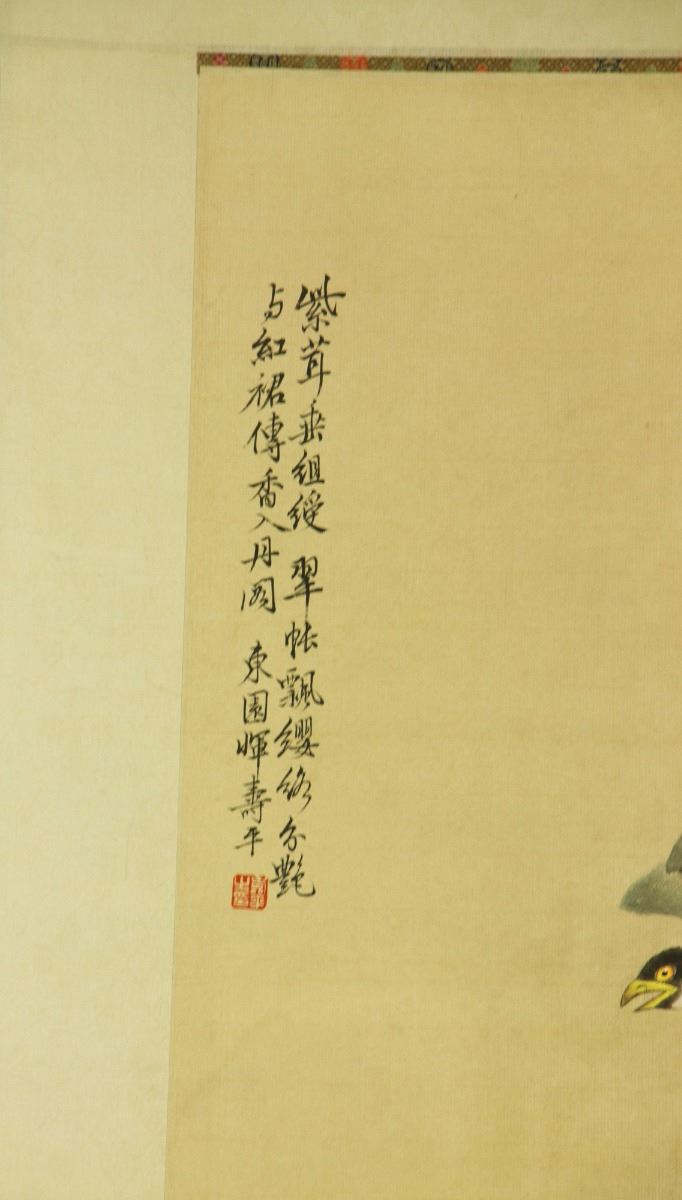 紫茸垂組綬 翠帐飄纓絡分艷
与紅裙傳香入丹阁 東園惲壽平